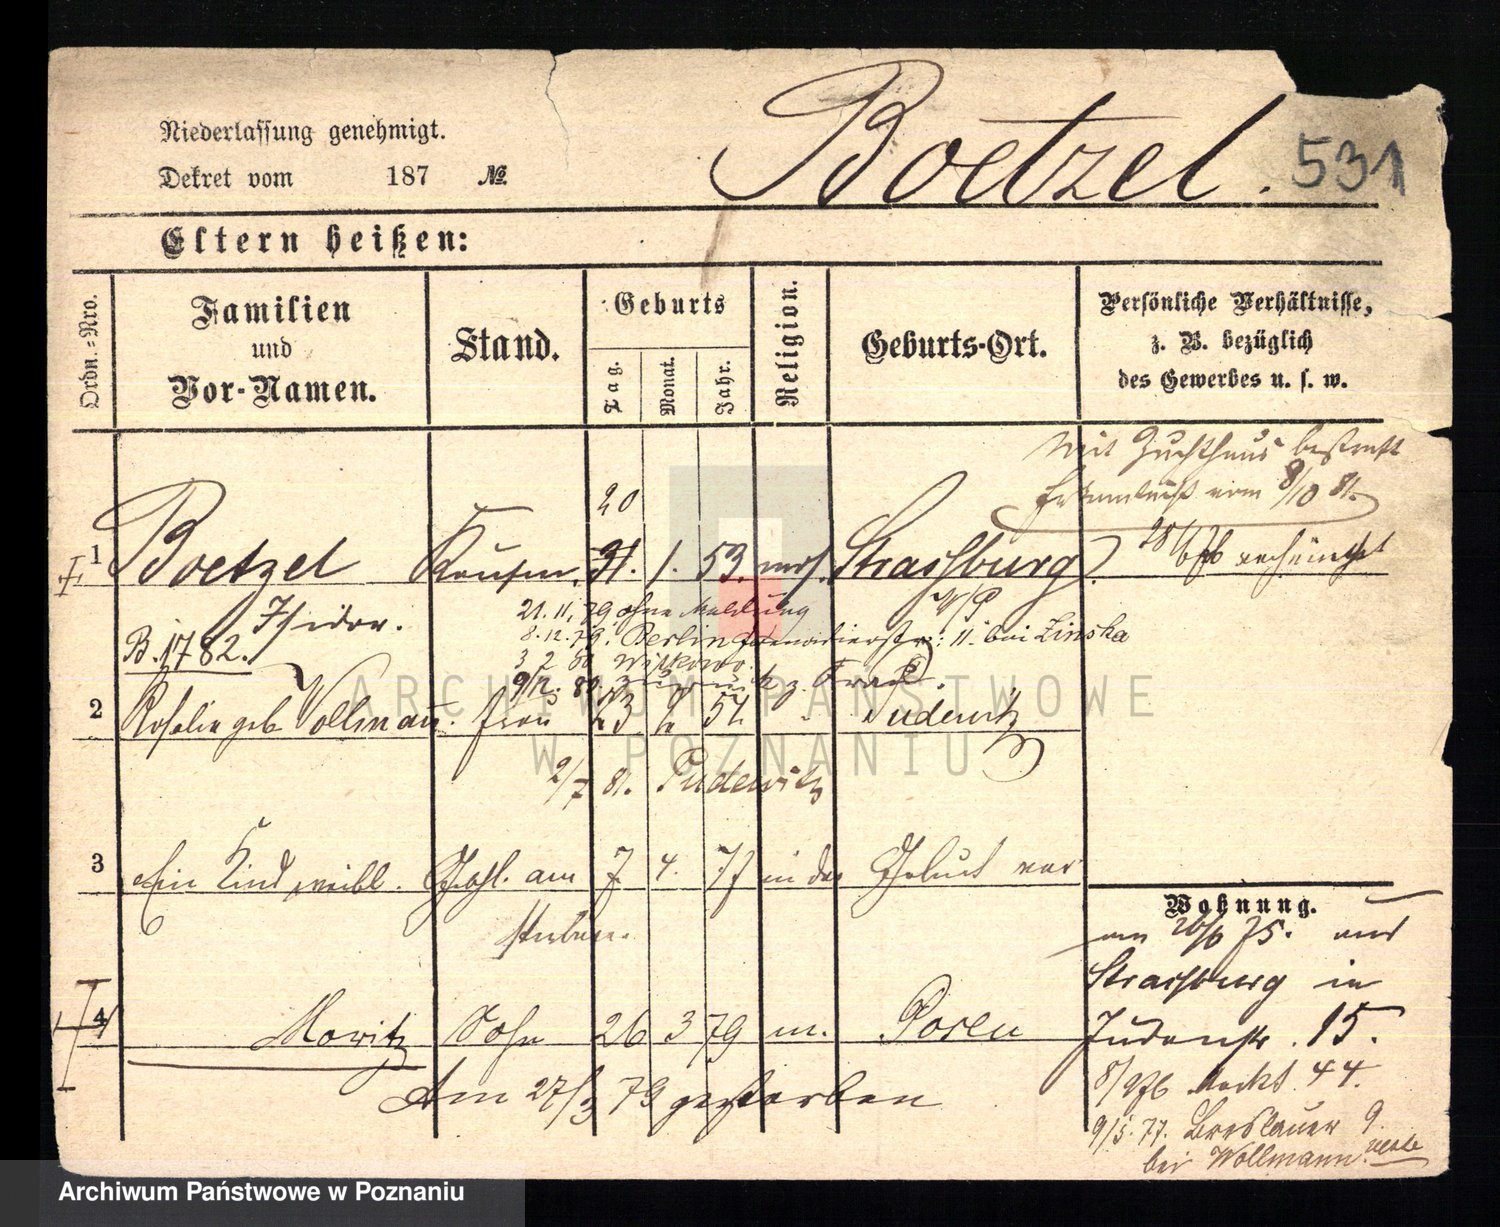 Niederlassung genehmigt.
Dekret vom 187 №
Boetzel. 531
Eltern heißen:
Ordn.-Nro.
Familien
und
Vor-Namen.
Stand.
Geburts
Tag.
Monat.
Jahr.
Religion.
Geburts-Ort.
Persönliche Verhältnisse,
z. B. bezüglich
des Gewerbes u. s. w.
Mit Zuchthaus bestraft
Erkenntniß vom 8/10 81.
20
1 Boetzel Kaufm. 31. 1. 53. mos. Strassburg
Isidor.
B. 1782.
21.11.79 ohne Meldung
8.12.79. Berlin Grenadierstr: 11. bei Zinska
3 2 80 Witkowo.
9/2. 80. zurück z. Frau.
2 Rosalie geb Wollmann. Frau 23 2 54 " Pudewitz
2/7 81. Pudewitz
3 Ein Kind weibl. Geschl. am 7 4. 77 in der Geburt ver
storben.
4 Moritz Sohn 26 3 79 m. Posen
Am 27/3 79 gestorben
Wohnung.
am 26/6 75. aus
Strassburg in
Judenstr. 15.
8/9 76 Markt 44.
9/5. 77. Breslauer 9.
bei Wollmann
ARCHIWUM PAŃSTWOWE
W POZNANIU
Archiwum Państwowe w Poznaniu